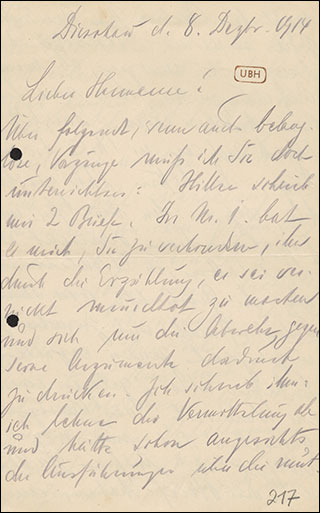 Dieskau d. 8. Dezbr. 1914
UBH
Lieber
Über folgende, wenn auch belang-
lose, Vorgänge muß ich Sie doch
unterrichten: schrieb
mir 2 Briefe. In Nr. 1. bat
er mich, Sie zu
durch die Erzählung, es sei ver-
sucht zu machen
und sich um die Abwehr gegen
seine Argumente dadurch
zu drücken. Ich schrieb ihm:
ich lehne die Vermittelung ab
und hätte schon angesichts
der Ausführungen über die
217